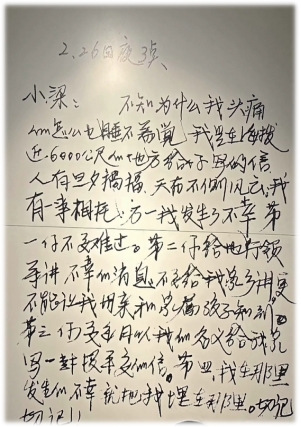 2.26日夜3点
小梁： 不知为什么我头痛
的怎么也睡不着觉 我是在海拔
近6000公尺的地方给你写的信
人有旦夕祸福、天有不测风云，我
有一事相托：万一我发生了不幸 第一
你不要难过。第二 你给地行领
导讲 不幸的消息。不要给我家乡讲 更
不能让我母亲和家属孩子知道。
第三 你要每月以我的名义给我家
写一封报平安的信。第四，我在那里
发生的不幸就把我埋在那里。切记
切记！